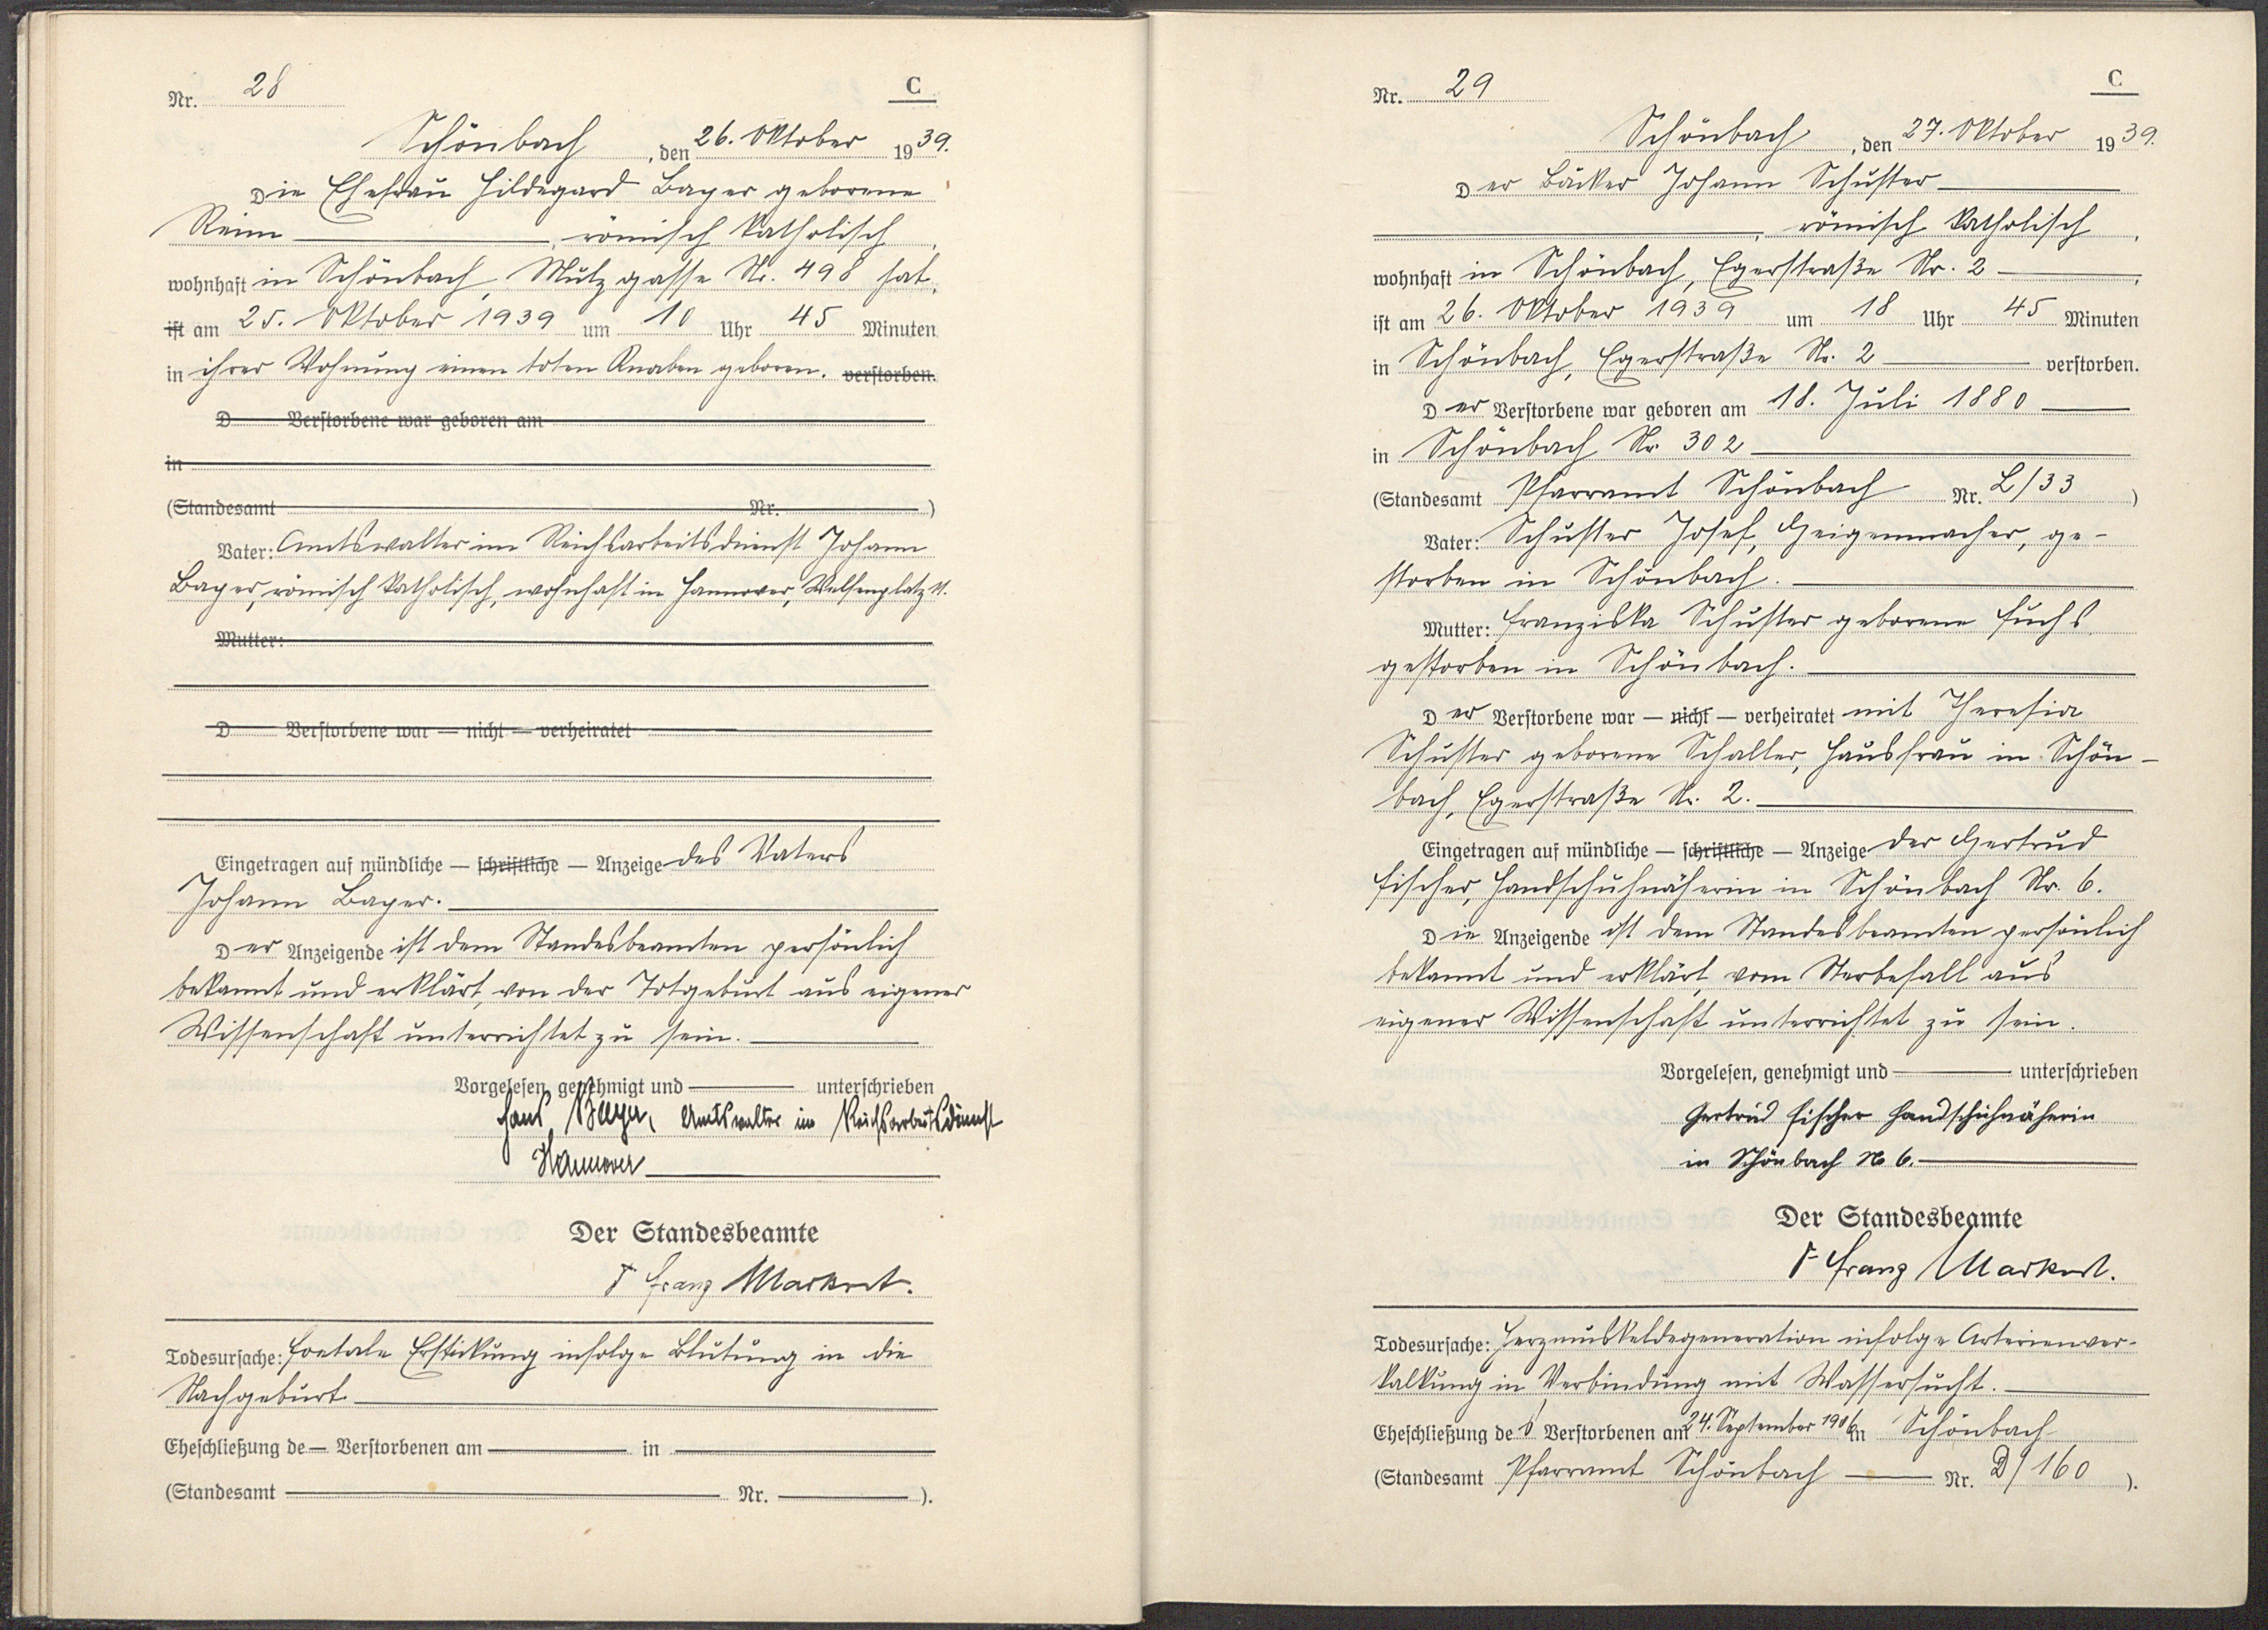 Nr. 28
C
Schönbach, den 26. Oktober 1939.
Die Ehefrau Hildegard Bayer geborene
Reim, römisch katholisch,
wohnhaft in Schönbach, Mutzgasse Nr. 498 hat,
ist am 25. Oktober 1939 um 10 Uhr 45 Minuten
in ihrer Wohnung einen toten Knaben geboren. verstorben.
D Verstorbene war geboren am
in
(Standesamt Nr. )
Vater: Amtswalter im Reichsarbeitsdienst Johann
Bayer, römisch katholisch, wohnhaft in Hannover, Welfenplatz
Mutter:
D Verstorbene war — nicht — verheiratet
Eingetragen auf mündliche — schriftliche — Anzeige des Vaters
Johann Bayer.
Der Anzeigende ist dem Standesbeamten persönlich
bekannt und erklärt, von der Totgeburt aus eigener
Wissenschaft unterrichtet zu sein.
Vorgelesen, genehmigt und unterschrieben
Hans Bayer, Amtswalter im Reichsarbeitsdienst
Hannover
Der Standesbeamte
Franz Markert.
Todesursache: Foetale Erstickung infolge Blutung in die
Nachgeburt
Eheschließung de Verstorbenen am in
(Standesamt Nr. ).
Nr. 29
C
Schönbach, den 27. Oktober 1939.
Der Bäcker Johann Schuster
, römisch katholisch,
wohnhaft in Schönbach, Egerstraße Nr. 2,
ist am 26. Oktober 1939 um 18 Uhr 45 Minuten
in Schönbach, Egerstraße Nr. 2 verstorben.
Der Verstorbene war geboren am 18. Juli 1880
in Schönbach Nr. 302
(Standesamt Pfarramt Schönbach Nr. L/33 )
Vater: Schuster Josef, Geigenmacher, ge-
storben in Schönbach.
Mutter: Franziska Schuster geborene Fuchs
gestorben in Schönbach.
Der Verstorbene war — nicht — verheiratet mit Theresia
Schuster geborene Schaller, Hausfrau in Schön-
bach, Egerstraße Nr. 2.
Eingetragen auf mündliche — schriftliche — Anzeige der Gertrud
Fischer, Handschuhnäherin in Schönbach Nr. 6.
Die Anzeigende ist dem Standesbeamten persönlich
bekannt und erklärt, vom Sterbefall aus
eigener Wissenschaft unterrichtet zu sein.
Vorgelesen, genehmigt und unterschrieben
Gertrud Fischer Handschuhnäherin
in Schönbach No 6.
Der Standesbeamte
Franz Markert.
Todesursache: Herzmuskeldegeneration infolge Arterienver-
kalkung in Verbindung mit Wassersucht.
Eheschließung des Verstorbenen am 24. September 1906 in Schönbach
(Standesamt Pfarramt Schönbach Nr. D/160 ).